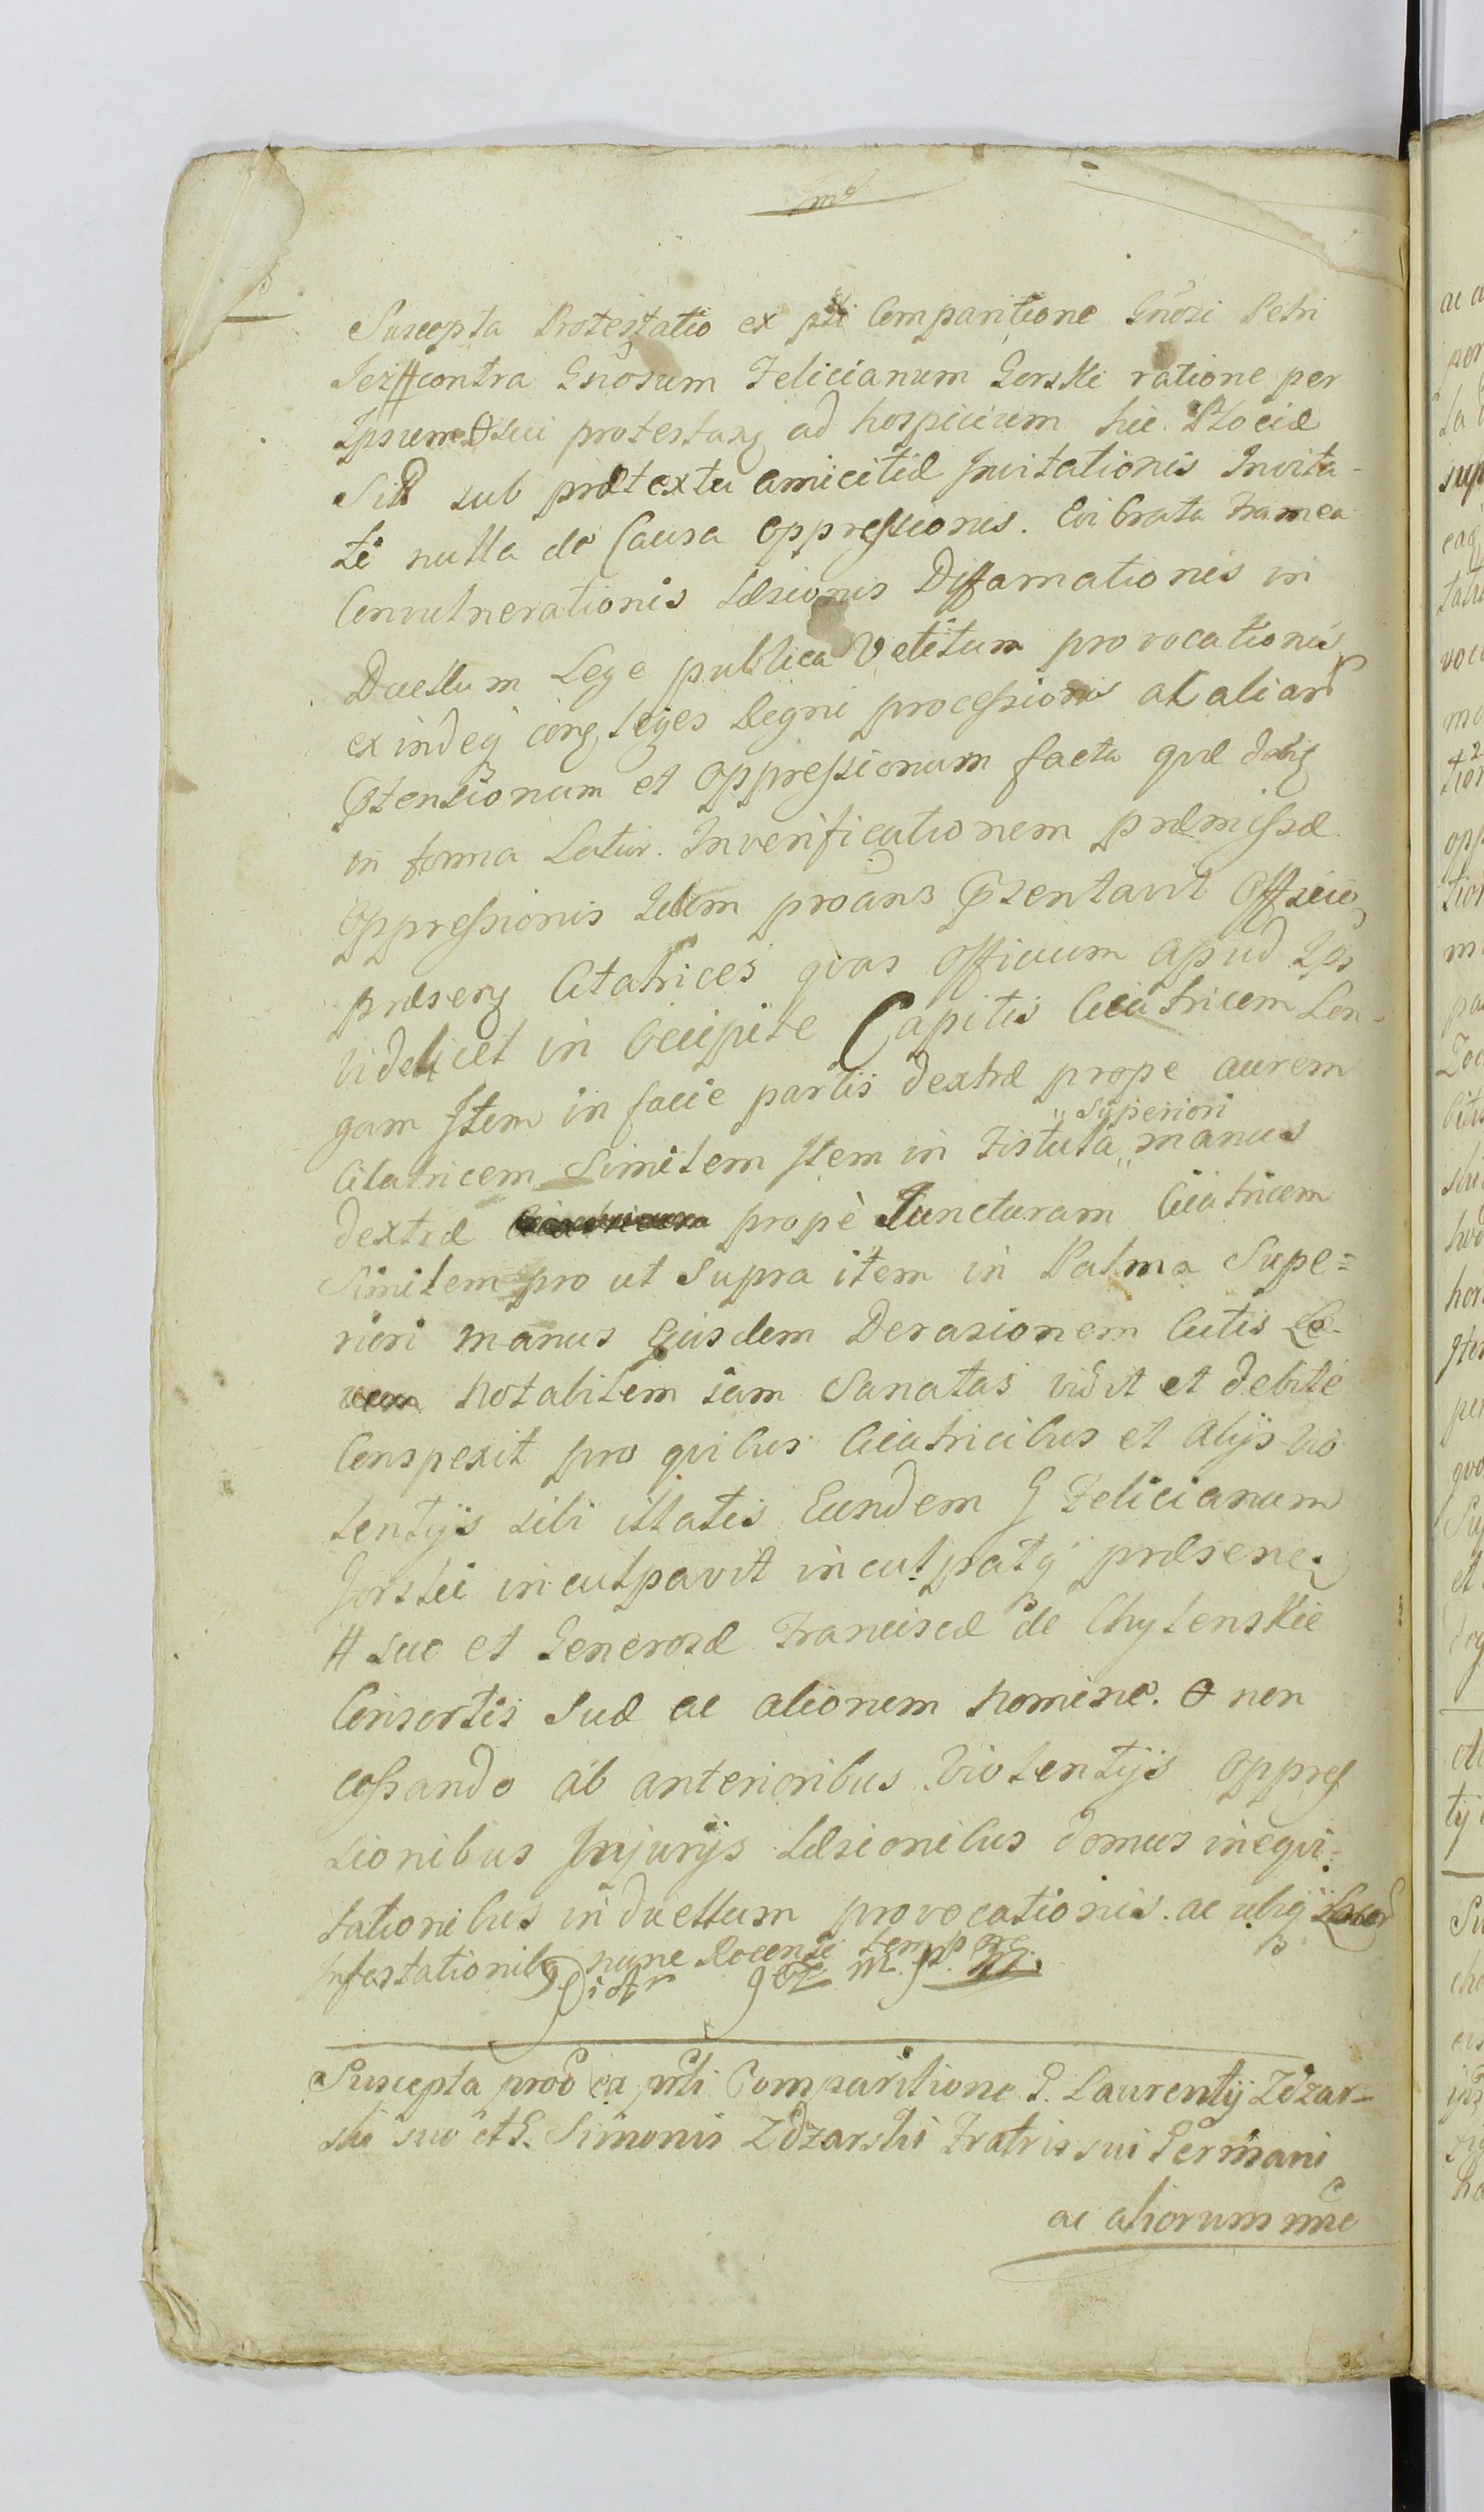 Suscepta Protestatio ex pti Comparitione Gnosi Petri
Jez # contra Gnosum Felicianum Gorski ratione per
Ipsum O sui protestanꝫ ad hospicium hic Plociæ
sub prætextu amicitiæ Invitationis Invita-
ti nulla de Causa oppressionis. Evibrata Framea
Convulnerationis Læsionis Diffamationis in
Duellum Lege publica Vetitum provocationis
exindeq conꝫ leges Regni processionis ac aliar
Ptensionum et oppressionum facta quæ
in forma Latior. In verificationem præmissæ
oppressionis Idem proāns Psentavit Officio
præsenꝫ Citatrices qvas Officium apud Ips
videlicet in Occipite Capitis Cicatricem Lon-
gam Item in facie partis dextræ prope aurem
Citatricem Similem Item in Fistula „superiori„ manus
dextræ propè Juncturam Cicatricem
Similem pro ut Supra item in Palma Supe=
riori manus Ejusdem Derasionem Cutis
notabilem iam Sanatas vidit et debité
Conspexit pro qvibus Cicatricibus et Alijs Vio
lentijs sibi illatis Eundem G Felicianum
Gorski inculpavit inculpatq præsene.
# suo et Generosæ Franciscæ de Chylenskie
Consortis Suæ ac alionem nomine. O non
cessando ab anterioribus Violentijs oppres
sionibus Injurijs Læsionibus domus ineqvi=
tationibus in duellum provocationis. ac
Infestationib nunc Recenti tempore
Piotr Jez m. p.
Suscepta proō ex prti Comparitione G. Laurentij Zdzar-
ski suo et G. Simonis Zdzarski Fratris sui Germani
ac aliorum nnē